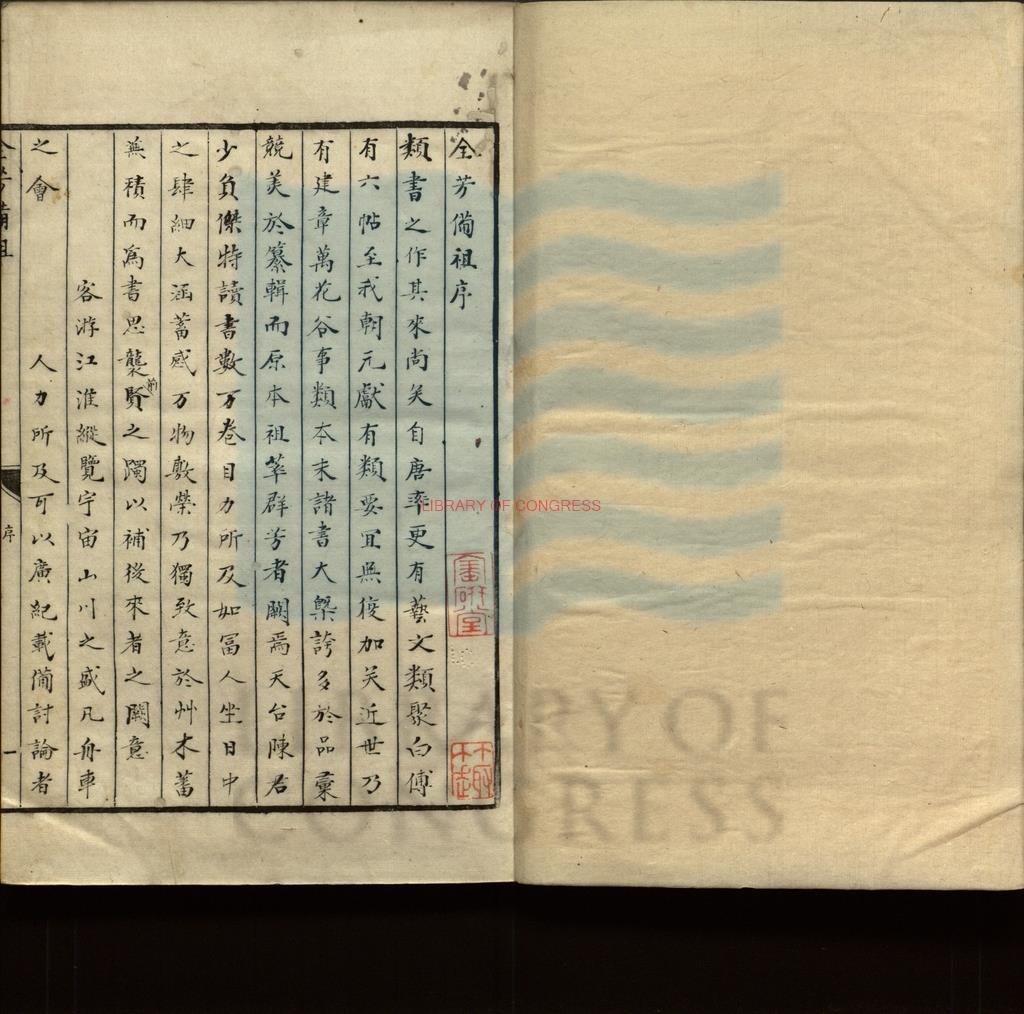 全芳備祖序
類書之作其來尚矣自唐率更有藝文類聚白傅
有六帖至我朝元獻有類要宜無復加矣近世乃
有建章萬花谷事類本末諸書大槩誇多於品彙
競美於纂輯而原本祖筆群芳者闕焉天台陳君
少負傑特讀書數万卷目力所及如冨人坐日中
之肆細大涵蓄感万物敷榮乃獨致意於艸木蓄
無積而爲書思襲前賢之躅以補後來者之闕意
客游江淮縱覽宇宙山川之盛凡舟車
之會　　　人力所及可以廣紀載備討論者
全芳備祖
序
一
LIBRARY OF CONGRESS
LIBRARY OF
CONGRESS